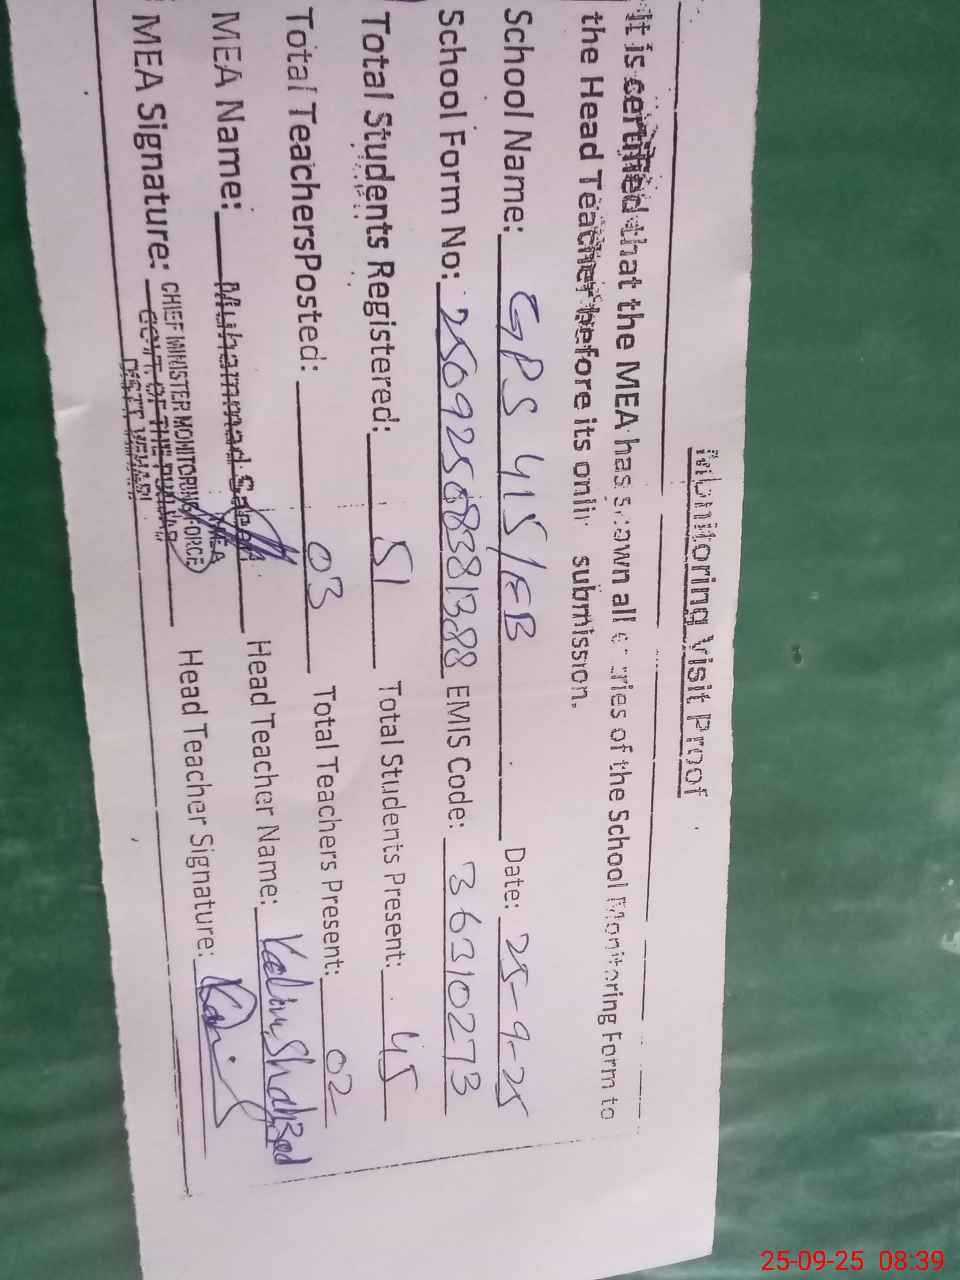 Monitoring Visit Proof
It is certified that the MEA has shown all entries of the School Monitoring Form to
the Head Teacher before its online submission.
School Name: GPS 415/EB Date: 25-9-25
School Form No: 25092508381388 EMIS Code: 36310273
Total Students Registered: 51 Total Students Present: 45
Total TeachersPosted: 03 Total Teachers Present: 02
MEA Name: Muhammad Saeed Head Teacher Name: Shahzad
MEA Signature: Head Teacher Signature:
MEA
CHIEF MINISTER MONITORING FORCE
GOVT. OF THE PUNJAB
DISTT. VEHARI
25-09-25 08:39